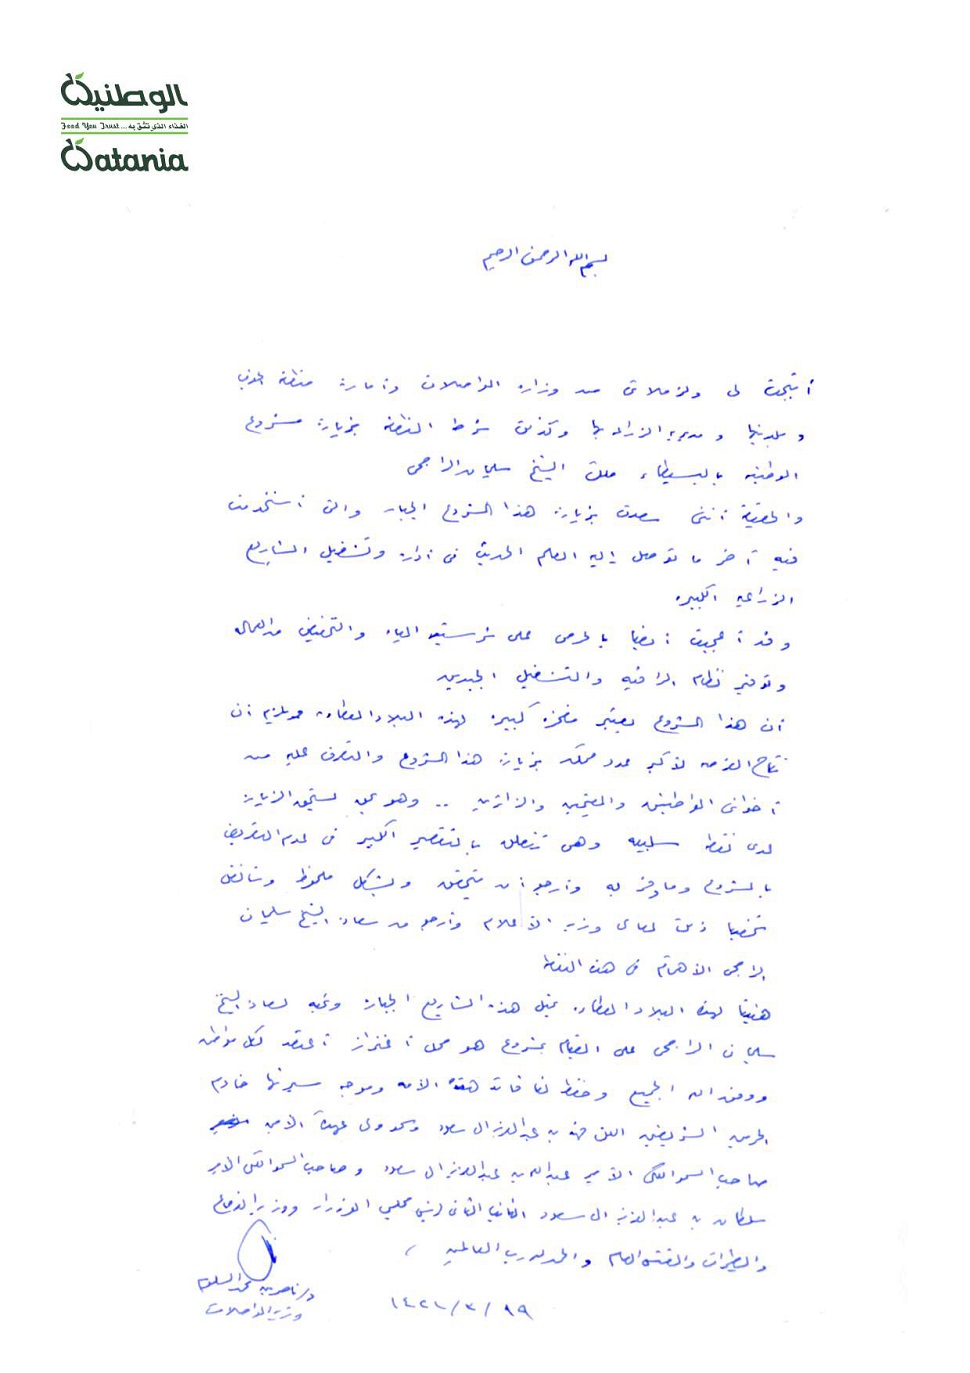 الوطنية
Food You Trust... الغذاء الذي تثق به
Watania
بسم الله الرحمن الرحيم
أتيحت لي ولزملائي من وزارة المواصلات وإمارة منطقة الجوف
وبلديتها ومديرية الزراعة بها وكذلك شرطة المنطقة بزيارة مشروع
الوطنية بالبسيطاء ملك الشيخ سليمان الراجحي
والحقيقة أنني سعدت بزيارة هذا المشروع الجبار والتي استخدمت
فيه آخر ما توصل إليه العلم الحديث في إدارة وتشغيل المشاريع
الزراعية الكبيرة
وقد أعجبت أيضا بالحرص على ترشيد المياه والتخفيض من العمالة
وتوفير نظام المراقبة والتشغيل الجيدين
أن هذا المشروع يعتبر مفخرة كبيرة لهذه البلاد المعطاءة ويلزم أن
تتاح الفرصة لأكبر عدد ممكن بزيارة هذا المشروع والتعرف عليه من
أخواني المواطنين والمقيمين والزائرين .. وهو بحق يستحق الزيارة
لدي نقطة سلبية وهي تتعلق بالتقصير الكبير في عدم التعريف
بالمشروع وما وفر به وأرجو أن يتحقق وبشكل ملحوظ وسأنقل
شخصيا ذلك لمعالي وزير الأعلام وأرجو من سعادة الشيخ سليمان
الراجحي الأهتمام في هذه النقطة
هنيئا لهذه البلاد المعطاءة بمثل هذه المشاريع الجبارة وتحية لسعادة الشيخ
سليمان الراجحي على القيام بمشروع هو محل اعتزاز أعتقد لكل مواطن
ووفق الله الجميع وحفظ لنا قائد هذه الأمة وموجه سيرتها خادم
الحرمين الشريفين الملك فهد بن عبدالعزيز ال سعود وسمو ولي عهده الأمين
صاحب السمو الملكي الأمير عبدالله بن عبدالعزيز ال سعود وصاحب السمو الملكي الأمير
سلطان بن عبدالعزيز ال سعود النائب الثاني لرئيس مجلس الوزراء ووزير الدفاع
والطيران والمفتش العام والحمد لله رب العالمين ،
د/ ناصر بن محمد السلوم
وزير المواصلات
١٤٢١/٣/١٩